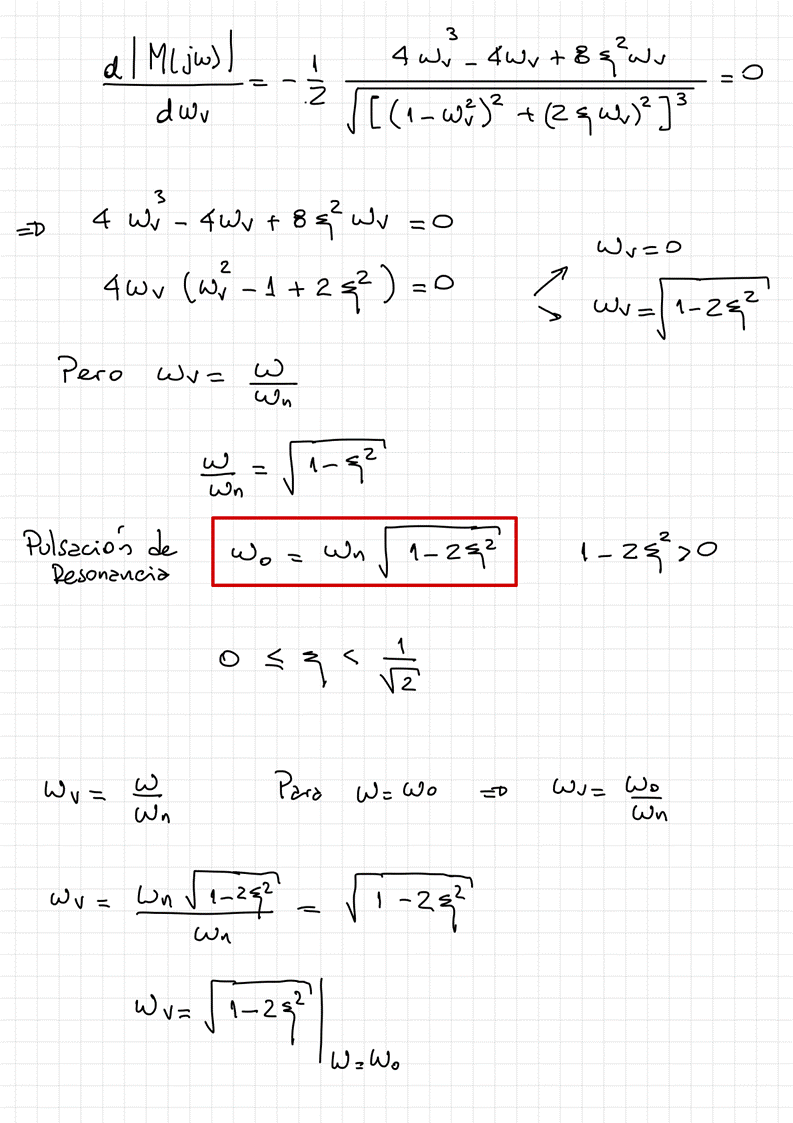 d|M(jω)| / dωv = - 1/2 (4ωv³ - 4ωv + 8ξ²ωv) / √([(1-ωv²)² + (2ξωv)²]³) = 0
⇒ 4ωv³ - 4ωv + 8ξ²ωv = 0
ωv = 0
4ωv (ωv² - 1 + 2ξ²) = 0 ↗ ↘ ωv = √(1-2ξ²)
Pero ωv = ω/ωn
ω/ωn = √(1-ξ²)
Pulsación de
Resonancia
ω₀ = ωn √(1-2ξ²) 1-2ξ² > 0
0 ≤ ξ < 1/√2
ωv = ω/ωn Para ω = ω₀ ⇒ ωv = ω₀/ωn
ωv = ωn √(1-2ξ²) / ωn = √(1-2ξ²)
ωv = √(1-2ξ²) | ω=ω₀